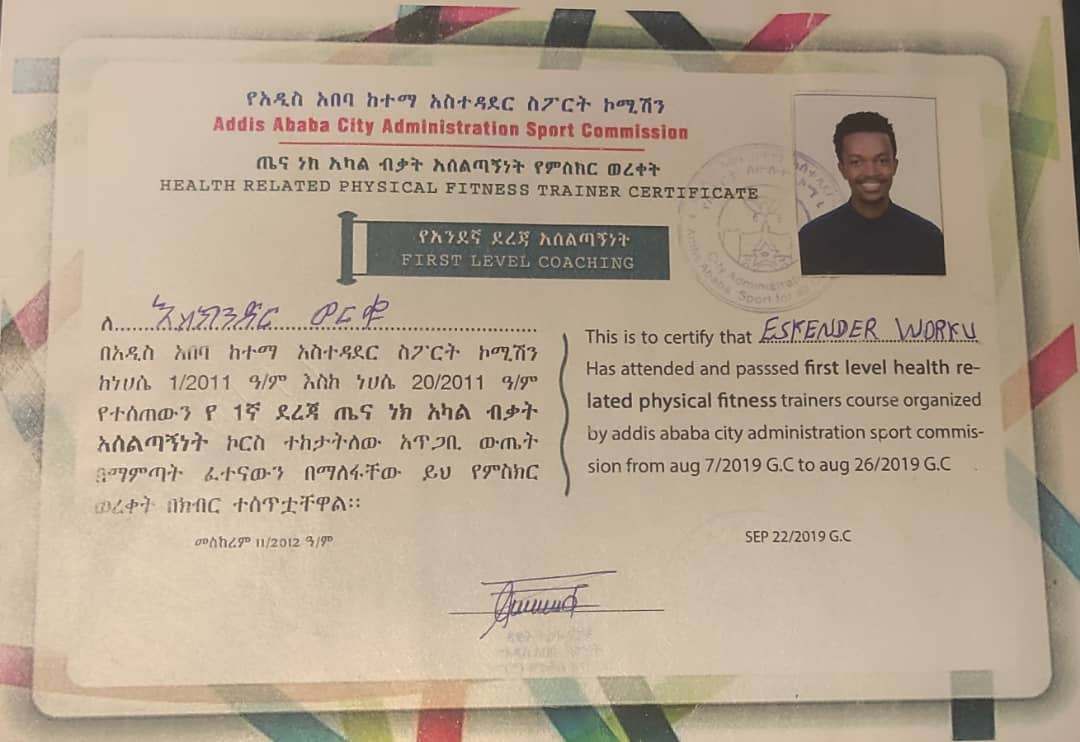 የአዲስ አበባ ከተማ አስተዳደር ስፖርት ኮሚሽን
Addis Ababa City Administration Sport Commission
ጤና ነክ አካል ብቃት አሰልጣኝነት የምስክር ወረቀት
HEALTH RELATED PHYSICAL FITNESS TRAINER CERTIFICATE
የአንደኛ ደረጃ አሰልጣኝነት
FIRST LEVEL COACHING
City Administration
Addis Ababa
Sport for all
ለ እስክንዳር ወርቁ
በአዲስ አበባ ከተማ አስተዳደር ስፖርት ኮሚሽን
ከነሀሴ 1/2011 ዓ/ም እስከ ነሀሴ 20/2011 ዓ/ም
የተሰጠውን የ 1ኛ ደረጃ ጤና ነክ አካል ብቃት
አሰልጣኝነት ኮርስ ተከታትለው አጥጋቢ ውጤት
በማምጣት ፈተናውን በማለፋቸው ይህ የምስክር
ወረቀት በክብር ተሰጥቷቸዋል፡፡
መስከረም 11/2012 ዓ/ም
This is to certify that ESKENDER WORKU
Has attended and passsed first level health re-
lated physical fitness trainers course organized
by addis ababa city administration sport commis-
sion from aug 7/2019 G.C to aug 26/2019 G.C
SEP 22/2019 G.C